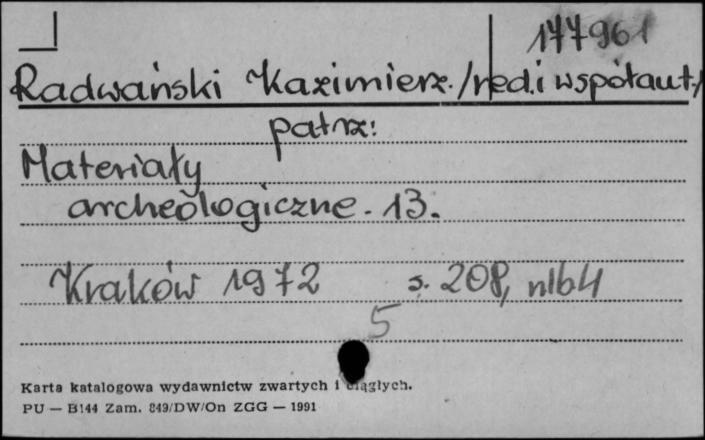 177961
Radwański Kazimierz. /red. i współaut./
patrz:
Materiały
archeologiczne. 13.
Kraków 1972 s. 208, nlb 4
5
Karta katalogowa wydawnictw zwartych i ciągłych.
PU — B144 Zam. 849/DW/On ZGG — 1991